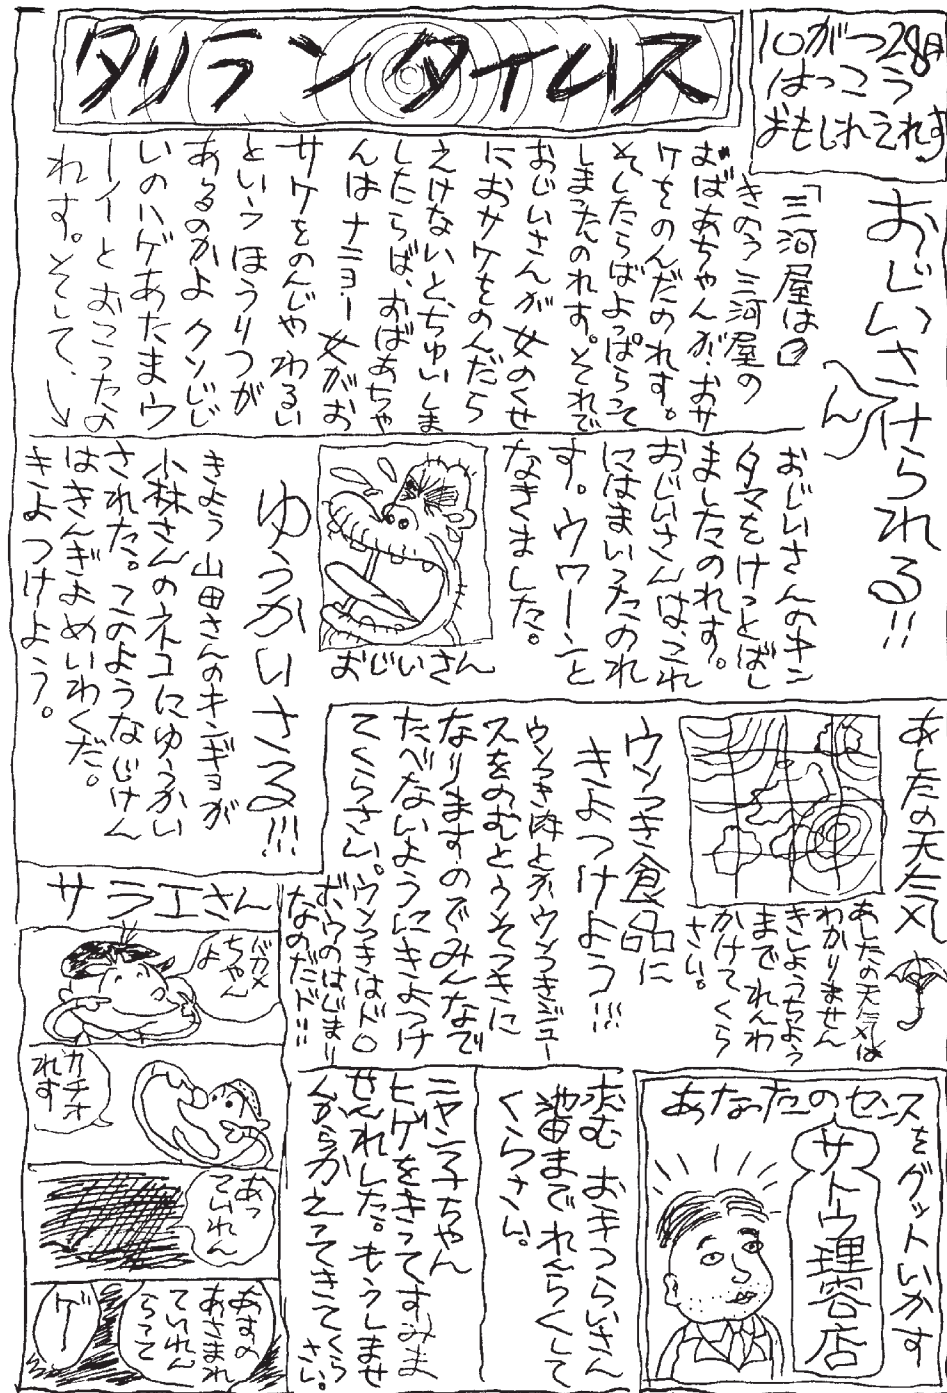 タリランタイムス
10がつ28日
はっこう
おもしれえれす
おじいさんけられる!!
「三河屋は
きのう三河屋の
おばあちゃんが、おサ
ケをのんだのれす。
そしたらばよっぱらって
しまったのれす。それで
おじいさんが女のくせ
におサケをのんだら
えけないと、ちゅいしま
したらば、おばあちゃ
んはナニョー 女がお
サケをのんじゃわるい
というほうりつが
あるのかよ クソじじ
いのハゲあたまーウ
ーイーとおこったの
れす。そして、↓
おじいさんのキン
タマをけっとばし
ましたのれす。
おじいさんは、これ
にはまいったのれ
す。ウワーンと
なきました。
おじいさん
ゆうかいさる!!!
きよう山田さんのキンギョが
小林さんのネコにゆうかい
された。このようなじけん
はきんぎよめいわくだ。
きよつけよう。
あしたの天気
あしたの天気は
わかりません
きしようちよう
まられれんわ
かけてくら
さい。
ウソつき食品に
きよつけよう!!!
ウソつき肉とかウソつきジュー
スをのむとうそつきに
なりますのでみんなで
たべないようにきよつけ
てくらさい。ウソつきはドロ
ボウのはじまり
なのだド!!
サラエさん
バカメ
ちゃん
よ
カチオ
れす
あっ
ていれん
あすの
あさまれ
ていれん
らって
ゲー
ニャン子ちゃん
ヒゲをきってすみま
せんれした。もうしませ
んからかえってきてくら
さい。
求む おきつらいさん
池田まられんらくして
くらさい。
あなたのセンスをグットいかす
サトウ理容店